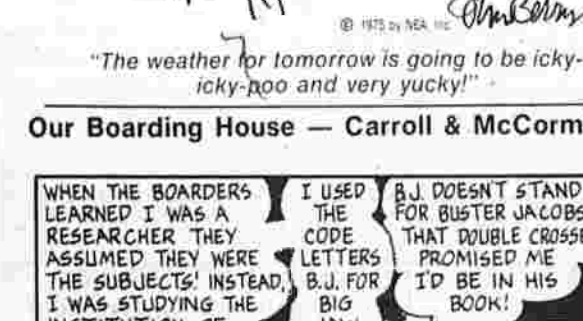 © 1975 by NEA, Inc.
"The weather for tomorrow is going to be icky-
icky-poo and very yucky!"
Our Boarding House — Carroll & McCorm
WHEN THE BOARDERS
LEARNED I WAS A
RESEARCHER THEY
ASSUMED THEY WERE
THE SUBJECTS! INSTEAD,
I WAS STUDYING THE
I USED
THE
CODE
LETTERS
B.J. FOR
BIG
B.J. DOESN'T STAND
FOR BUSTER JACOBS
THAT DOUBLE CROSSE
PROMISED ME
I'D BE IN HIS
BOOK!